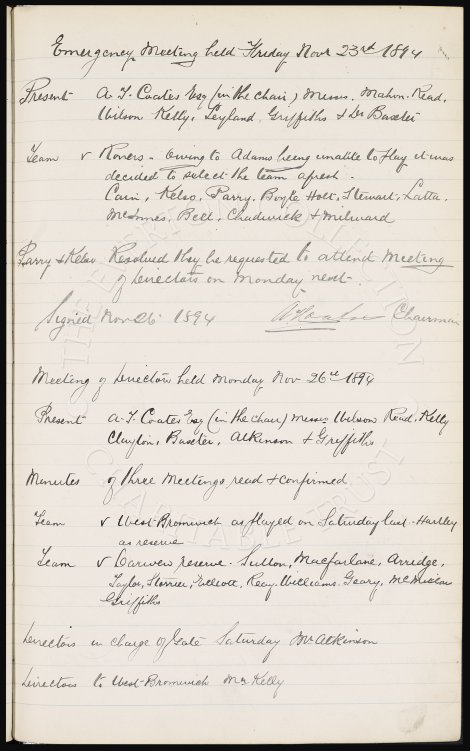 Emergency Meeting held Friday Novr 23rd 1894
Present A. T. Coates Esq (in the chair) Messrs. Mahon. Read,
Wilson Kelly, Leyland, Griffiths & Dr Baxter
Team v Rovers - owing to Adams being unable to play it was
decided to select the team afresh -
Cain, Kelso, Parry, Boyle Holt, Stewart, Latta,
McInnes, Bell, Chadwick & Milward
Parry & Kelso Resolved they be requested to attend Meeting
of Directors on Monday next.
Signed Nov 26 1894 A T Coates Chairman
Meeting of Directors held Monday Nov 26th 1894
Present A. T. Coates Esq (in the chair) Messrs Wilson Read, Kelly
Clayton, Baxter, Atkinson & Griffiths
Minutes of three Meetings read & confirmed
Team v West Bromwich as played on Saturday last - Hartley
as reserve
Team v Darwen reserve. Sutton, Macfarlane, Arridge,
Taylor, Storrier, Elliott, Reay Williams. Geary, McMillan
Griffiths
Directors in charge of Gate Saturday Mr Atkinson
Directors to West Bromwich Mr Kelly
CHARITABLE TRUST
COLLECTION